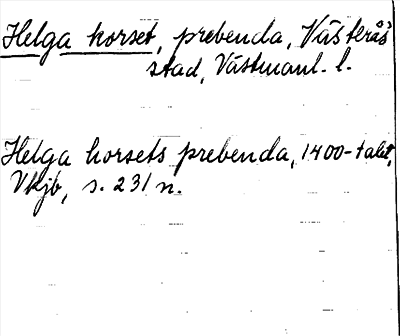 Helga korset, prebenda, Västerås
stad, Västmanl. l.
Helga korsets prebenda, 1400-talet,
Vkjb, s. 231 n.